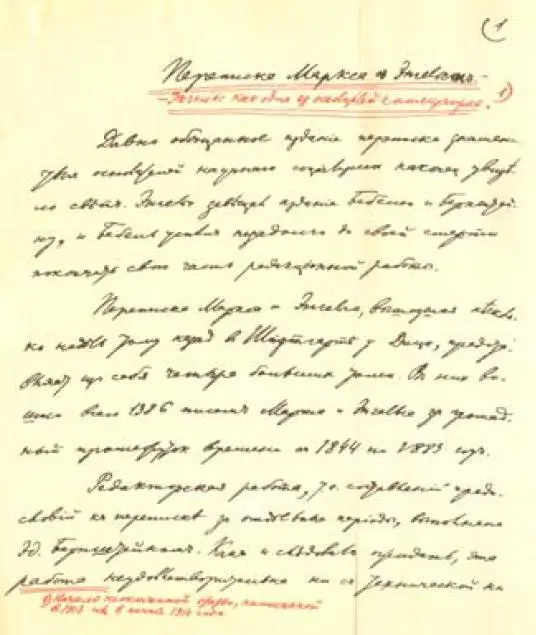 1
Переписка Маркса с Энгельсом. –
– Энгельс как один из основателей коммунизма. 1)
Давно обещанное издание переписки знамени-
тых основателей научного социализма наконец увиде-
ло свѣт. Энгельс завещал издание Бебелю и Бернштей-
ну, и Бебель успел незадолго до своей смерти
закончить свою часть редакционной работы.
Переписка Маркса и Энгельса, вышедшая нѣсколь-
ко недѣль тому назад в Штуттгарте у Дитца, представ-
ляет из себя четыре больших тома. В них во-
шло всего 1386 писем Маркса и Энгельса за громад-
ный промежуток времени с 1844 по 1883 год.
Редакторская работа, т.е. составление преди-
словий к переписке за отдѣльные периоды, выполнена
Эд. Бернштейном. Как и слѣдовало ожидать, эта
работа неудовлетворительна ни с технической ни
1) Начало неоконченной статьи, написанной
в 1913 или в начале 1914 года